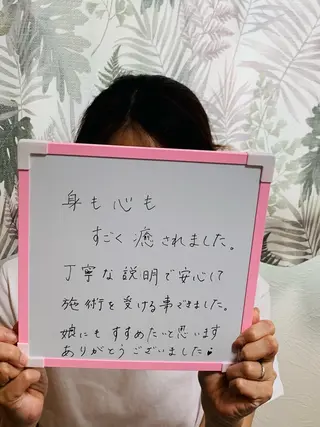 身も心も
すごく癒されました。
丁寧な説明で安心して
施術を受ける事できました。
娘にもすすめたいと思います
ありがとうございました